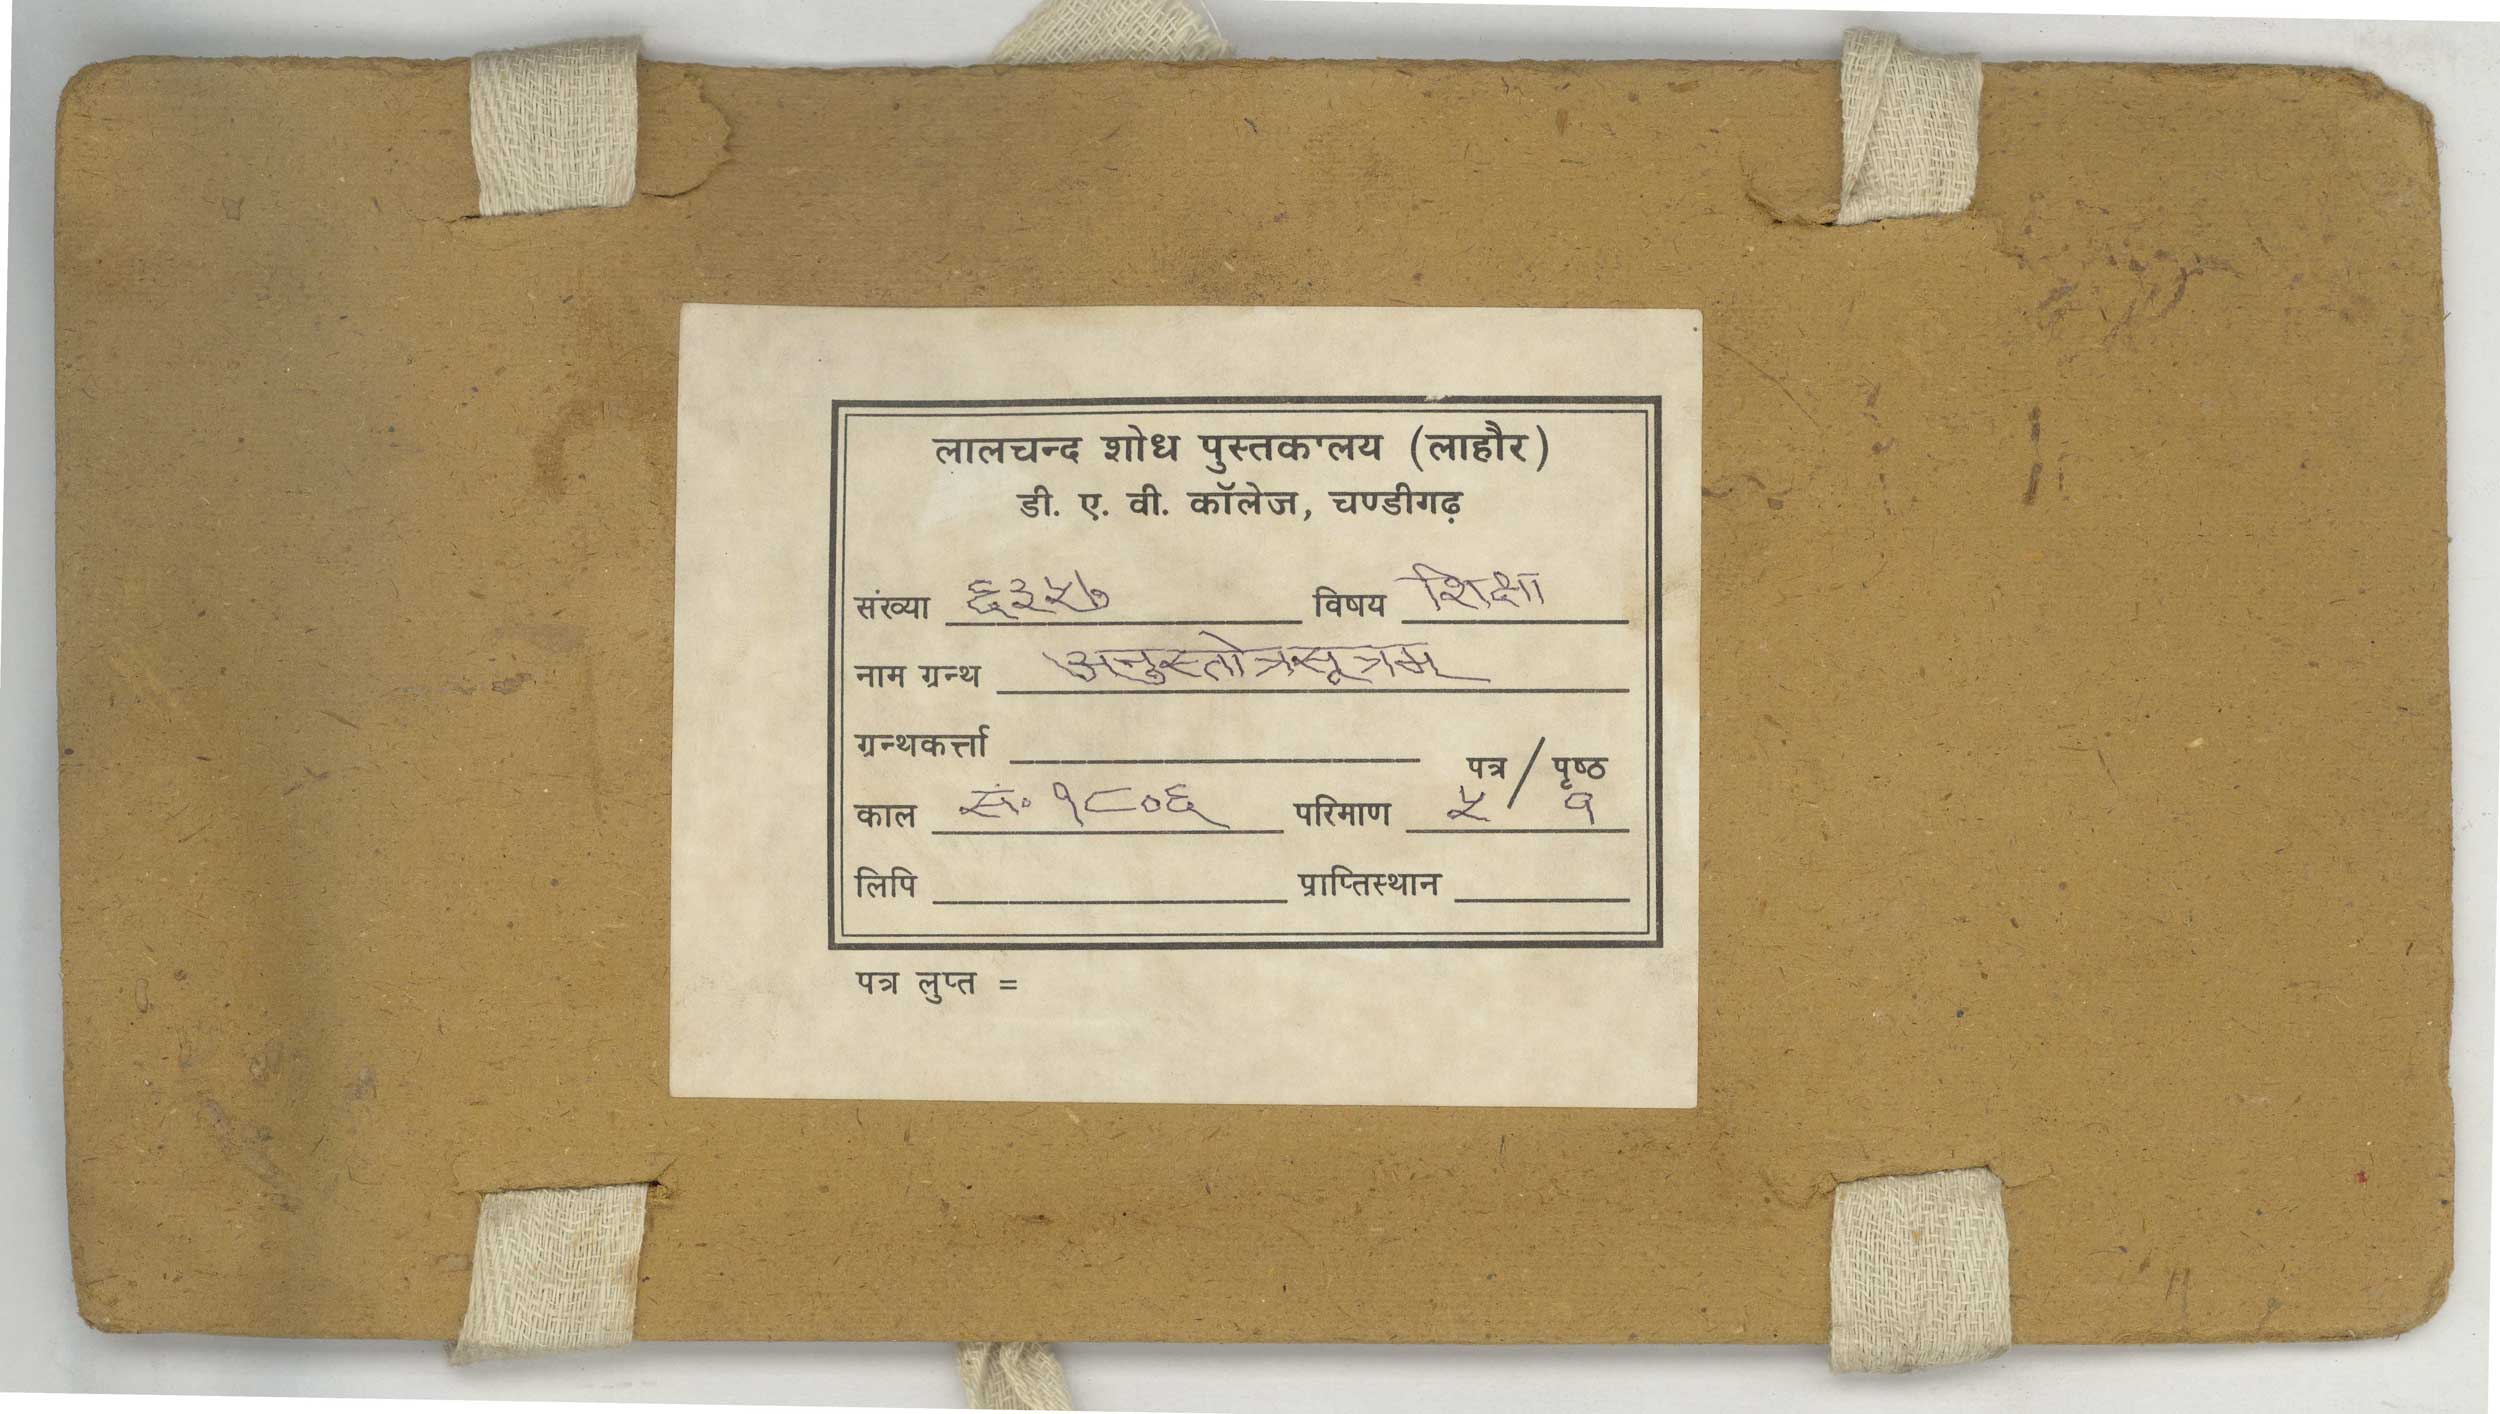 लालचन्द शोध पुस्तकालय (लाहौर)
डी. ए. वी. कॉलेज, चण्डीगढ़
संख्या ६३५७ विषय शिक्षा
नाम ग्रन्थ अनुस्तोत्रसूत्रम्
ग्रन्थकर्त्ता
पत्र / पृष्ठ
काल सं० १८०६ परिमाण ५ १
लिपि प्राप्तिस्थान
पत्र लुप्त =